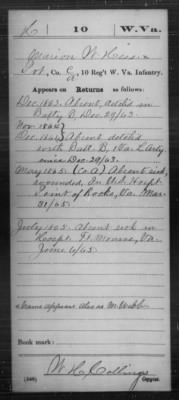 H 10 W.Va.
Marion W. Hess
Pvt., Co. C/A, 10 Reg't W. Va. Infantry.
Appears on Returns as follows:
Dec. 1863. Absent, detch'd in
Batt'y B, Dec. 29/63.
Nov. 1864
Dec. 1864 Absent detch'd
with Batt. B, 1 Va. L. Arty
since Dec. 29/63.
May 1865 (Co. A) Absent sick,
wounded, In U.S. Hospt.
Point of Rocks, Va. Mar.
31/65
July 1865 Absent sick in
Hospt. Ft. Monroe, Va.
June 6/65
Name appears also as
Book mark:
W. H. Collings
(546) Copyist.